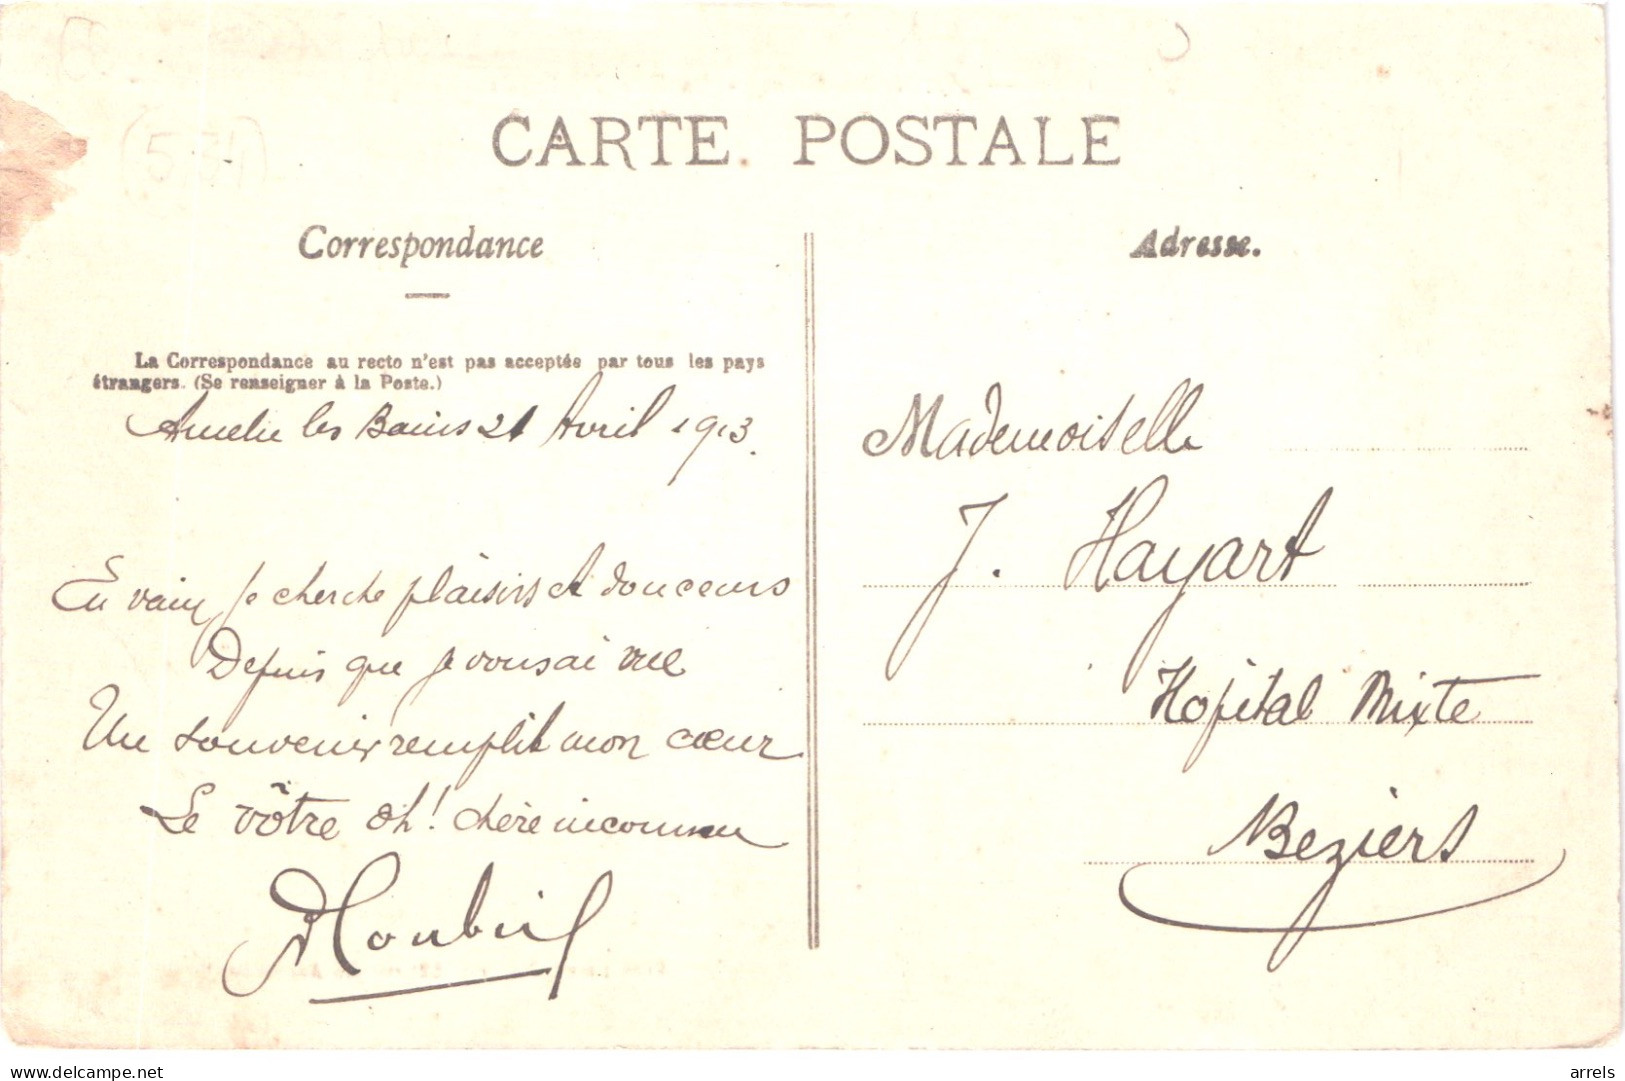 (534)
CARTE POSTALE
Correspondance
La Correspondance au recto n'est pas acceptée par tous les pays
étrangers. (Se renseigner à la Poste.)
Amelie les Bains 21 Avril 1913.
En vain je cherche plaisirs et douceurs
Depuis que je vous ai vue
Un souvenir remplit mon cœur
Le vôtre oh! chère inconnue
Adresse.
Mademoiselle
J. Hayart
Hopital Mixte
Beziers
delcampe.net
arrels